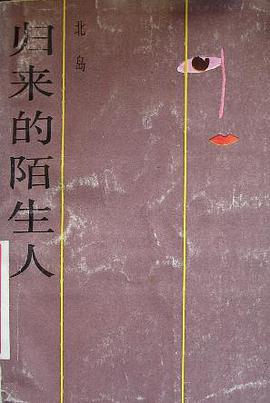 归来的陌生人
北岛